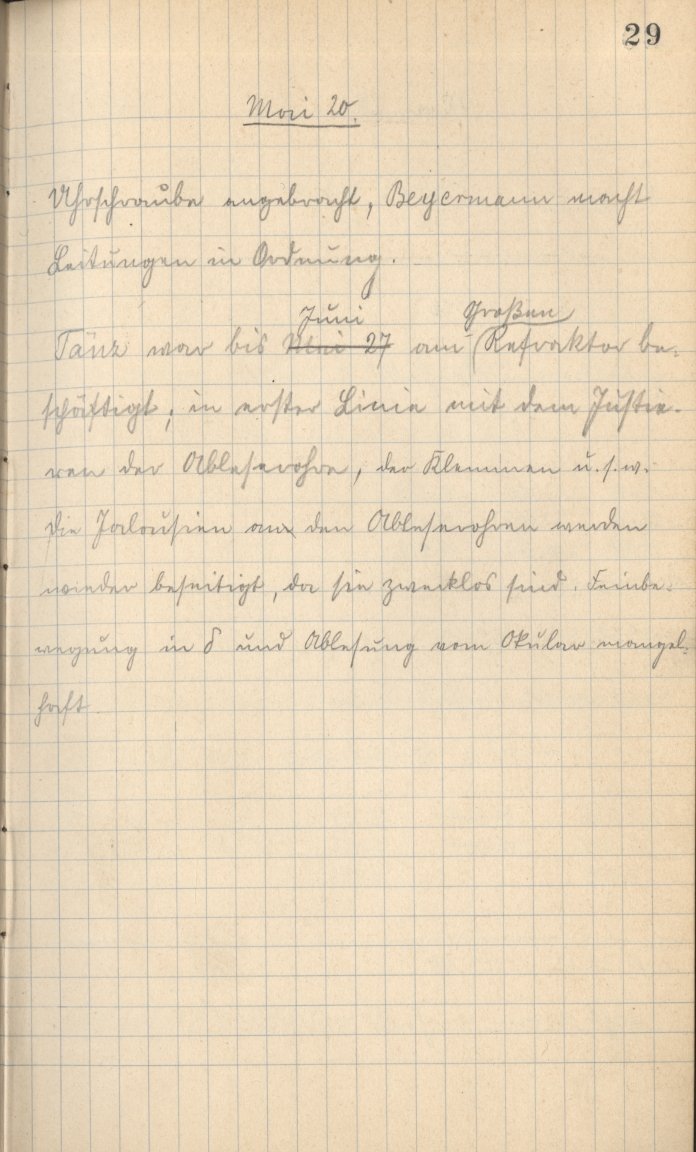 29
Mai 20.
Uhrschraube angebracht, Beyermann macht
Leitungen in Ordnung.
Juni Großen
Tänz war bis Mai 27 am Refraktor be-
schäftigt, in erster Linie mit dem Justie-
ren der Ableserohre, der Klemmen u.s.w.
Die Jalousien an den Ableserohren werden
wieder beseitigt, da sie zwecklos sind. Feinbe-
wegung in δ und Ablesung vom Okular mangel-
haft.